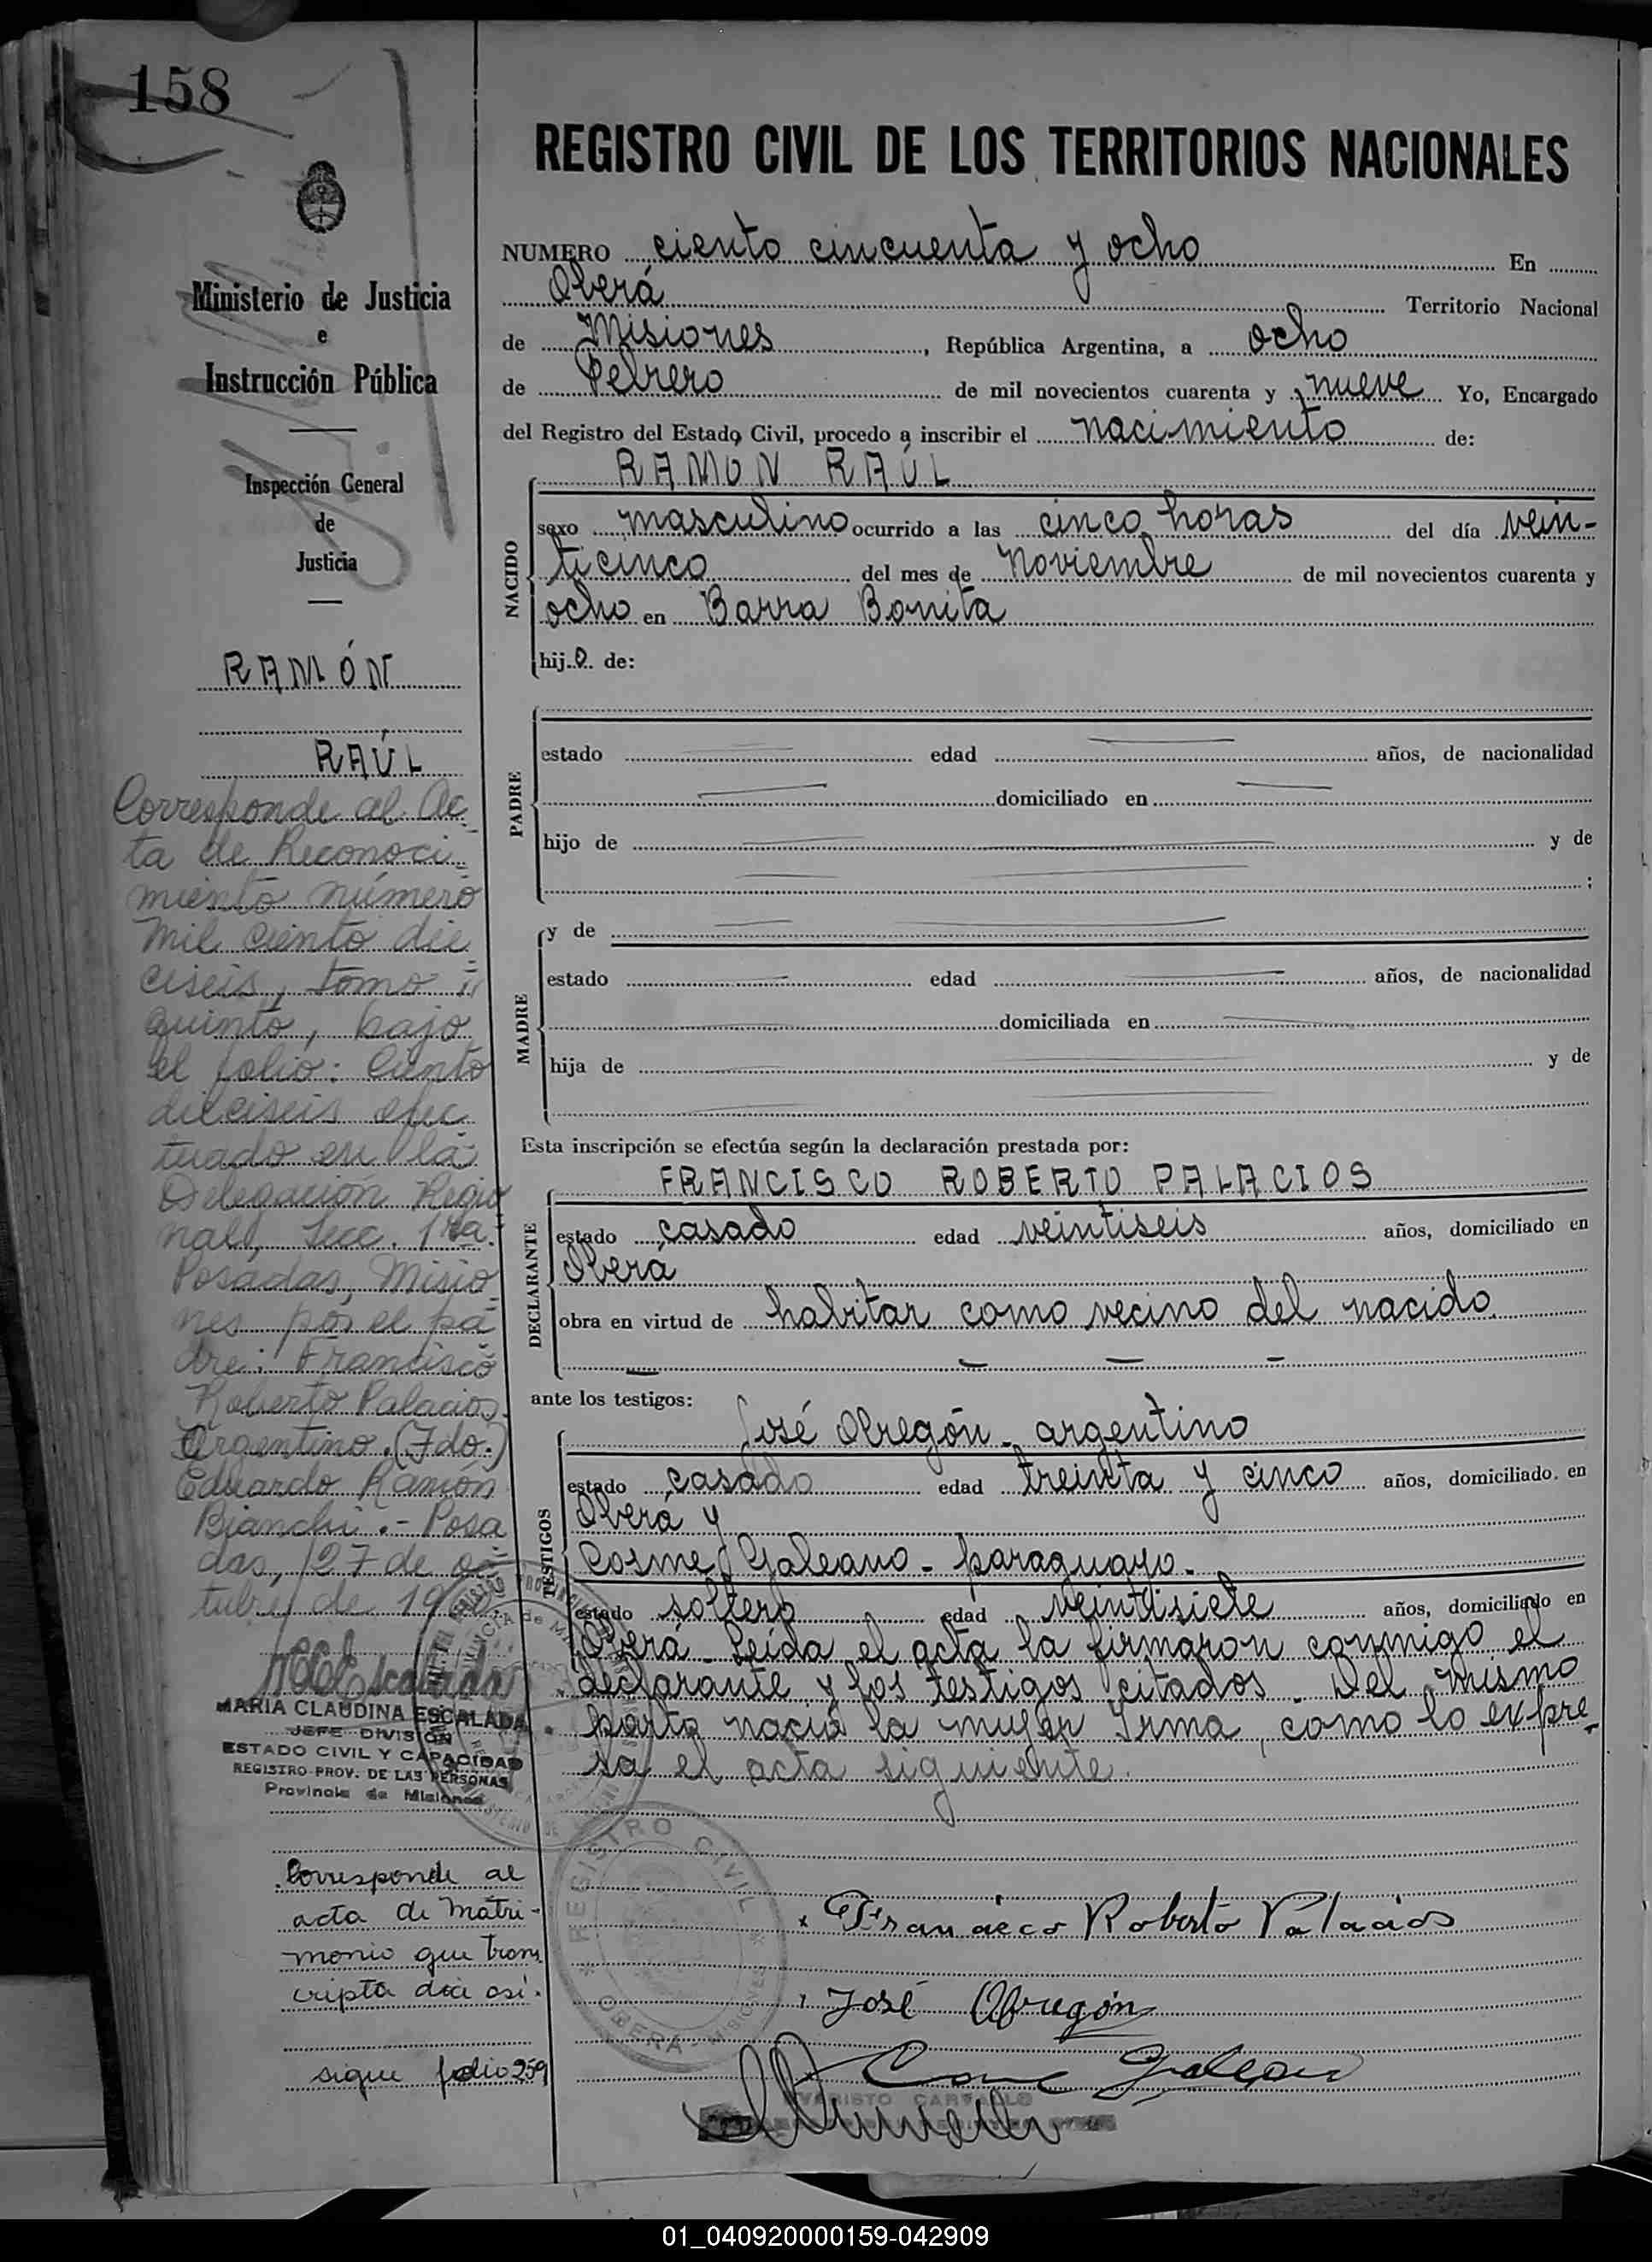 158
Ministerio de Justicia
e
Instrucción Pública
Inspección General
de
Justicia
RAMÓN
RAÚL
Corresponde al Ac-
ta de Reconoci-
miento número
Mil ciento die
ciseis, tomo
quinto, bajo
el folio: Ciento
dieciseis efec
tuado en la
Delegación Regio
nal, Secc. 1ra.
Posadas, Misio
nes por el pa
dre: Francisco
Roberto Palacios.
Argentino. (Fdo.)
Eduardo Ramón
Bianchi.- Posa
das, 27 de oc
tubre de
MARIA CLAUDINA ESCALADA
JEFE DIVISIÓN
ESTADO CIVIL Y CAPACIDAD
REGISTRO PROV. DE LAS PERSONAS
Provincia de Misiones
Corresponde al
acta de Matri-
monio que trans
cripta dice así.
sigue folio 259
REGISTRO CIVIL DE LOS TERRITORIOS NACIONALES
NUMERO ciento cincuenta y ocho En
Oberá Territorio Nacional
de Misiones, República Argentina, a ocho
de Febrero de mil novecientos cuarenta y nueve Yo, Encargado
del Registro del Estado Civil, procedo a inscribir el nacimiento de:
RAMON RAÚL
NACIDO
sexo masculino ocurrido a las cinco horas del día vein-
ticinco del mes de Noviembre de mil novecientos cuarenta y
ocho en Barra Bonita
hijo de:
PADRE
estado edad años, de nacionalidad
domiciliado en
hijo de y de
;
MADRE
y de
estado edad años, de nacionalidad
domiciliada en
hija de y de
Esta inscripción se efectúa según la declaración prestada por:
FRANCISCO ROBERTO PALACIOS
DECLARANTE
estado casado edad veintiseis años, domiciliado en
Oberá
obra en virtud de habitar como vecino del nacido
ante los testigos:
José Obregón - argentino
TESTIGOS
estado casado edad treinta y cinco años, domiciliado en
Oberá y
Cosme Galeano - paraguayo -
estado soltero edad veintisiete años, domiciliado en
Oberá - Leída el acta la firmaron conmigo el
declarante y los testigos citados. Del mismo
parto nació la mujer Irma, como lo expre-
sa el acta siguiente.
REGISTRO CIVIL
OBERÁ - MISIONES
Francisco Roberto Palacios
José Obregón
01_040920000159-042909